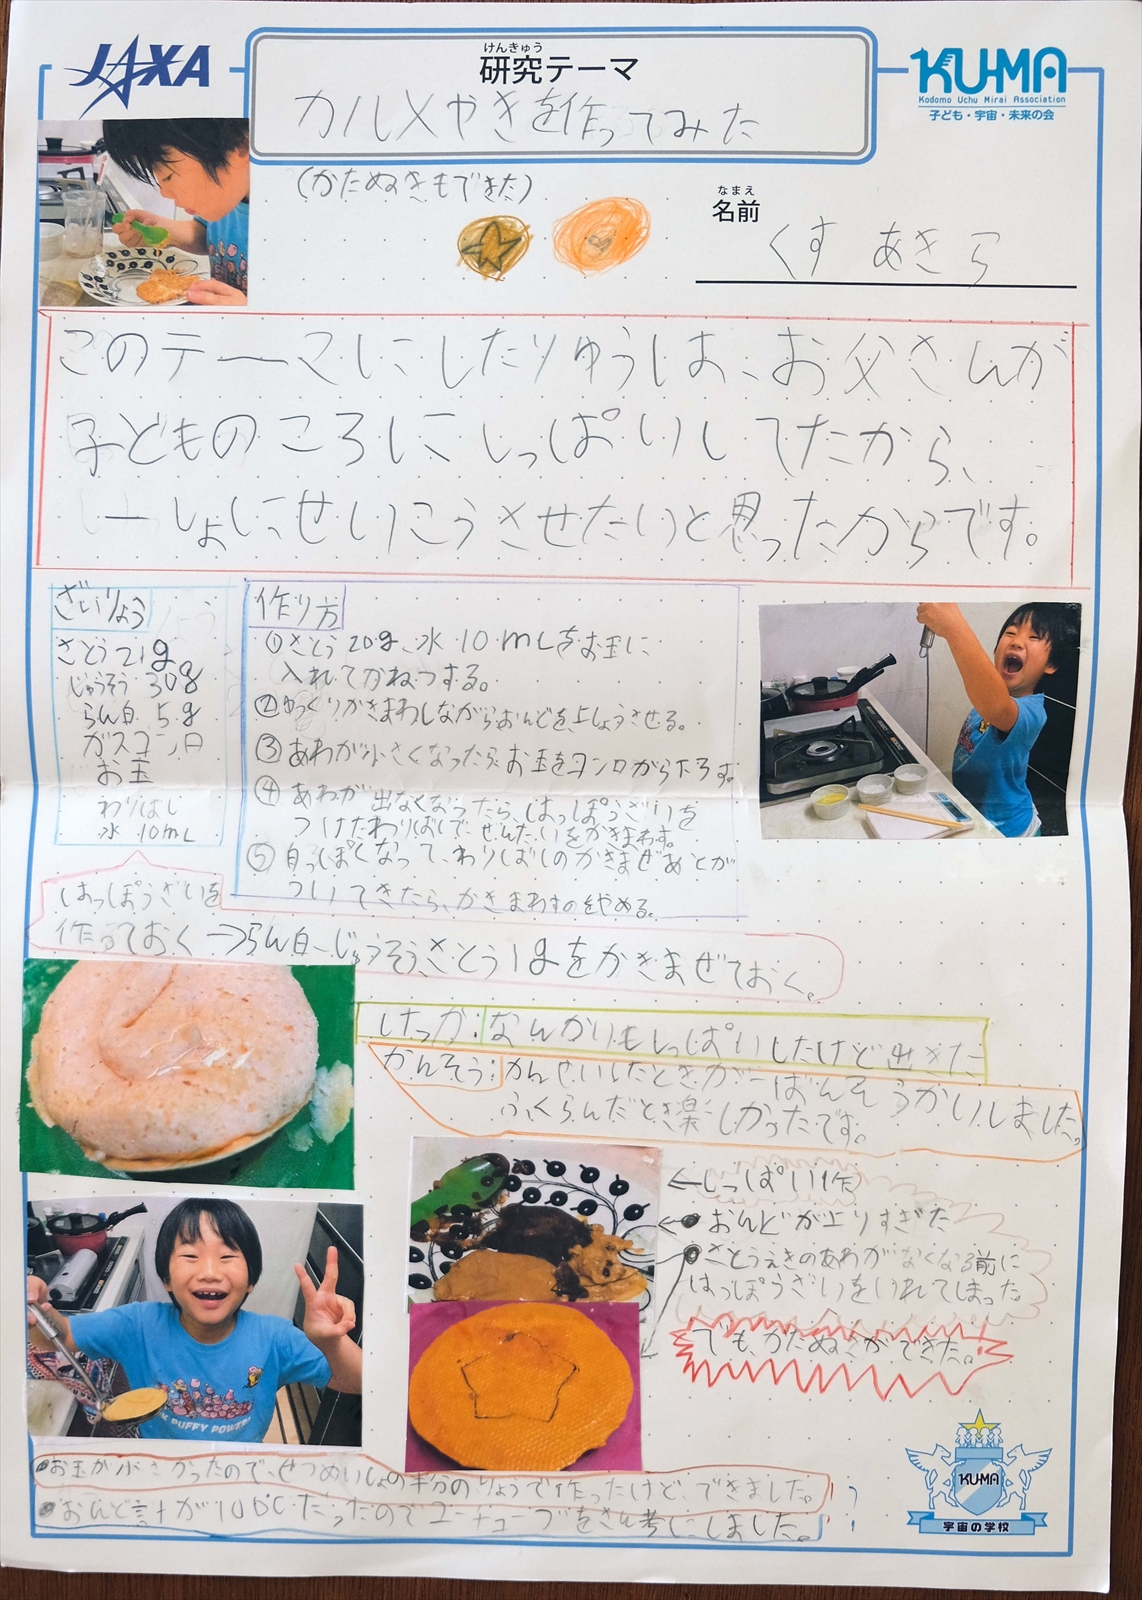 JAXA
けんきゅう
研究テーマ
KU-MA
Kodomo Uchu Mirai Association
子ども・宇宙・未来の会
カルメやきを作ってみた
(かたぬきもできた)
なまえ
名前
くす あきら
このテーマにしたりゆうは、お父さんが
子どものころにしっぱいしてたから、
一しょにせいこうさせたいと思ったからです。
ざいりょう
さとう21g
じゅうそう 30g
らん白 5g
ガスコンロ
お玉
わりばし
水 10mL
作り方
①さとう 20g、水 10mLをお玉に
入れてかねつする。
②ゆっくりかきまわしながらおんどを上しょうさせる。
③あわが小さくなったらお玉をコンロからおろす。
④あわが出なくなったら、はっぽうざいを
つけたわりばしで、ぜんたいをかきまわす。
⑤白っぽくなって、わりばしのかきまぜあとが
ついてきたら、かきまわすのをやめる。
はっぽうざいを
作っておく→らん白、じゅうそう、さとう1gをかきまぜておく。
けっか:なんかいもしっぱいしたけど出きた
かんそう:かんせいしたときが一ばんそうかいしました。
ふくらんだとき楽しかったです。
←しっぱい作
←●おんどが上りすぎた
●さとうえきのあわがなくなる前に
はっぽうざいをいれてしまった。
でも、かたぬきができた。
PUFFY POWER!
●お玉が小さかったので、せつめいしょの半分のりょうで作ったけど、できました。
●おんど計が100℃だったのでユーチューブをさん考にしました。
KU-MA
宇宙の学校